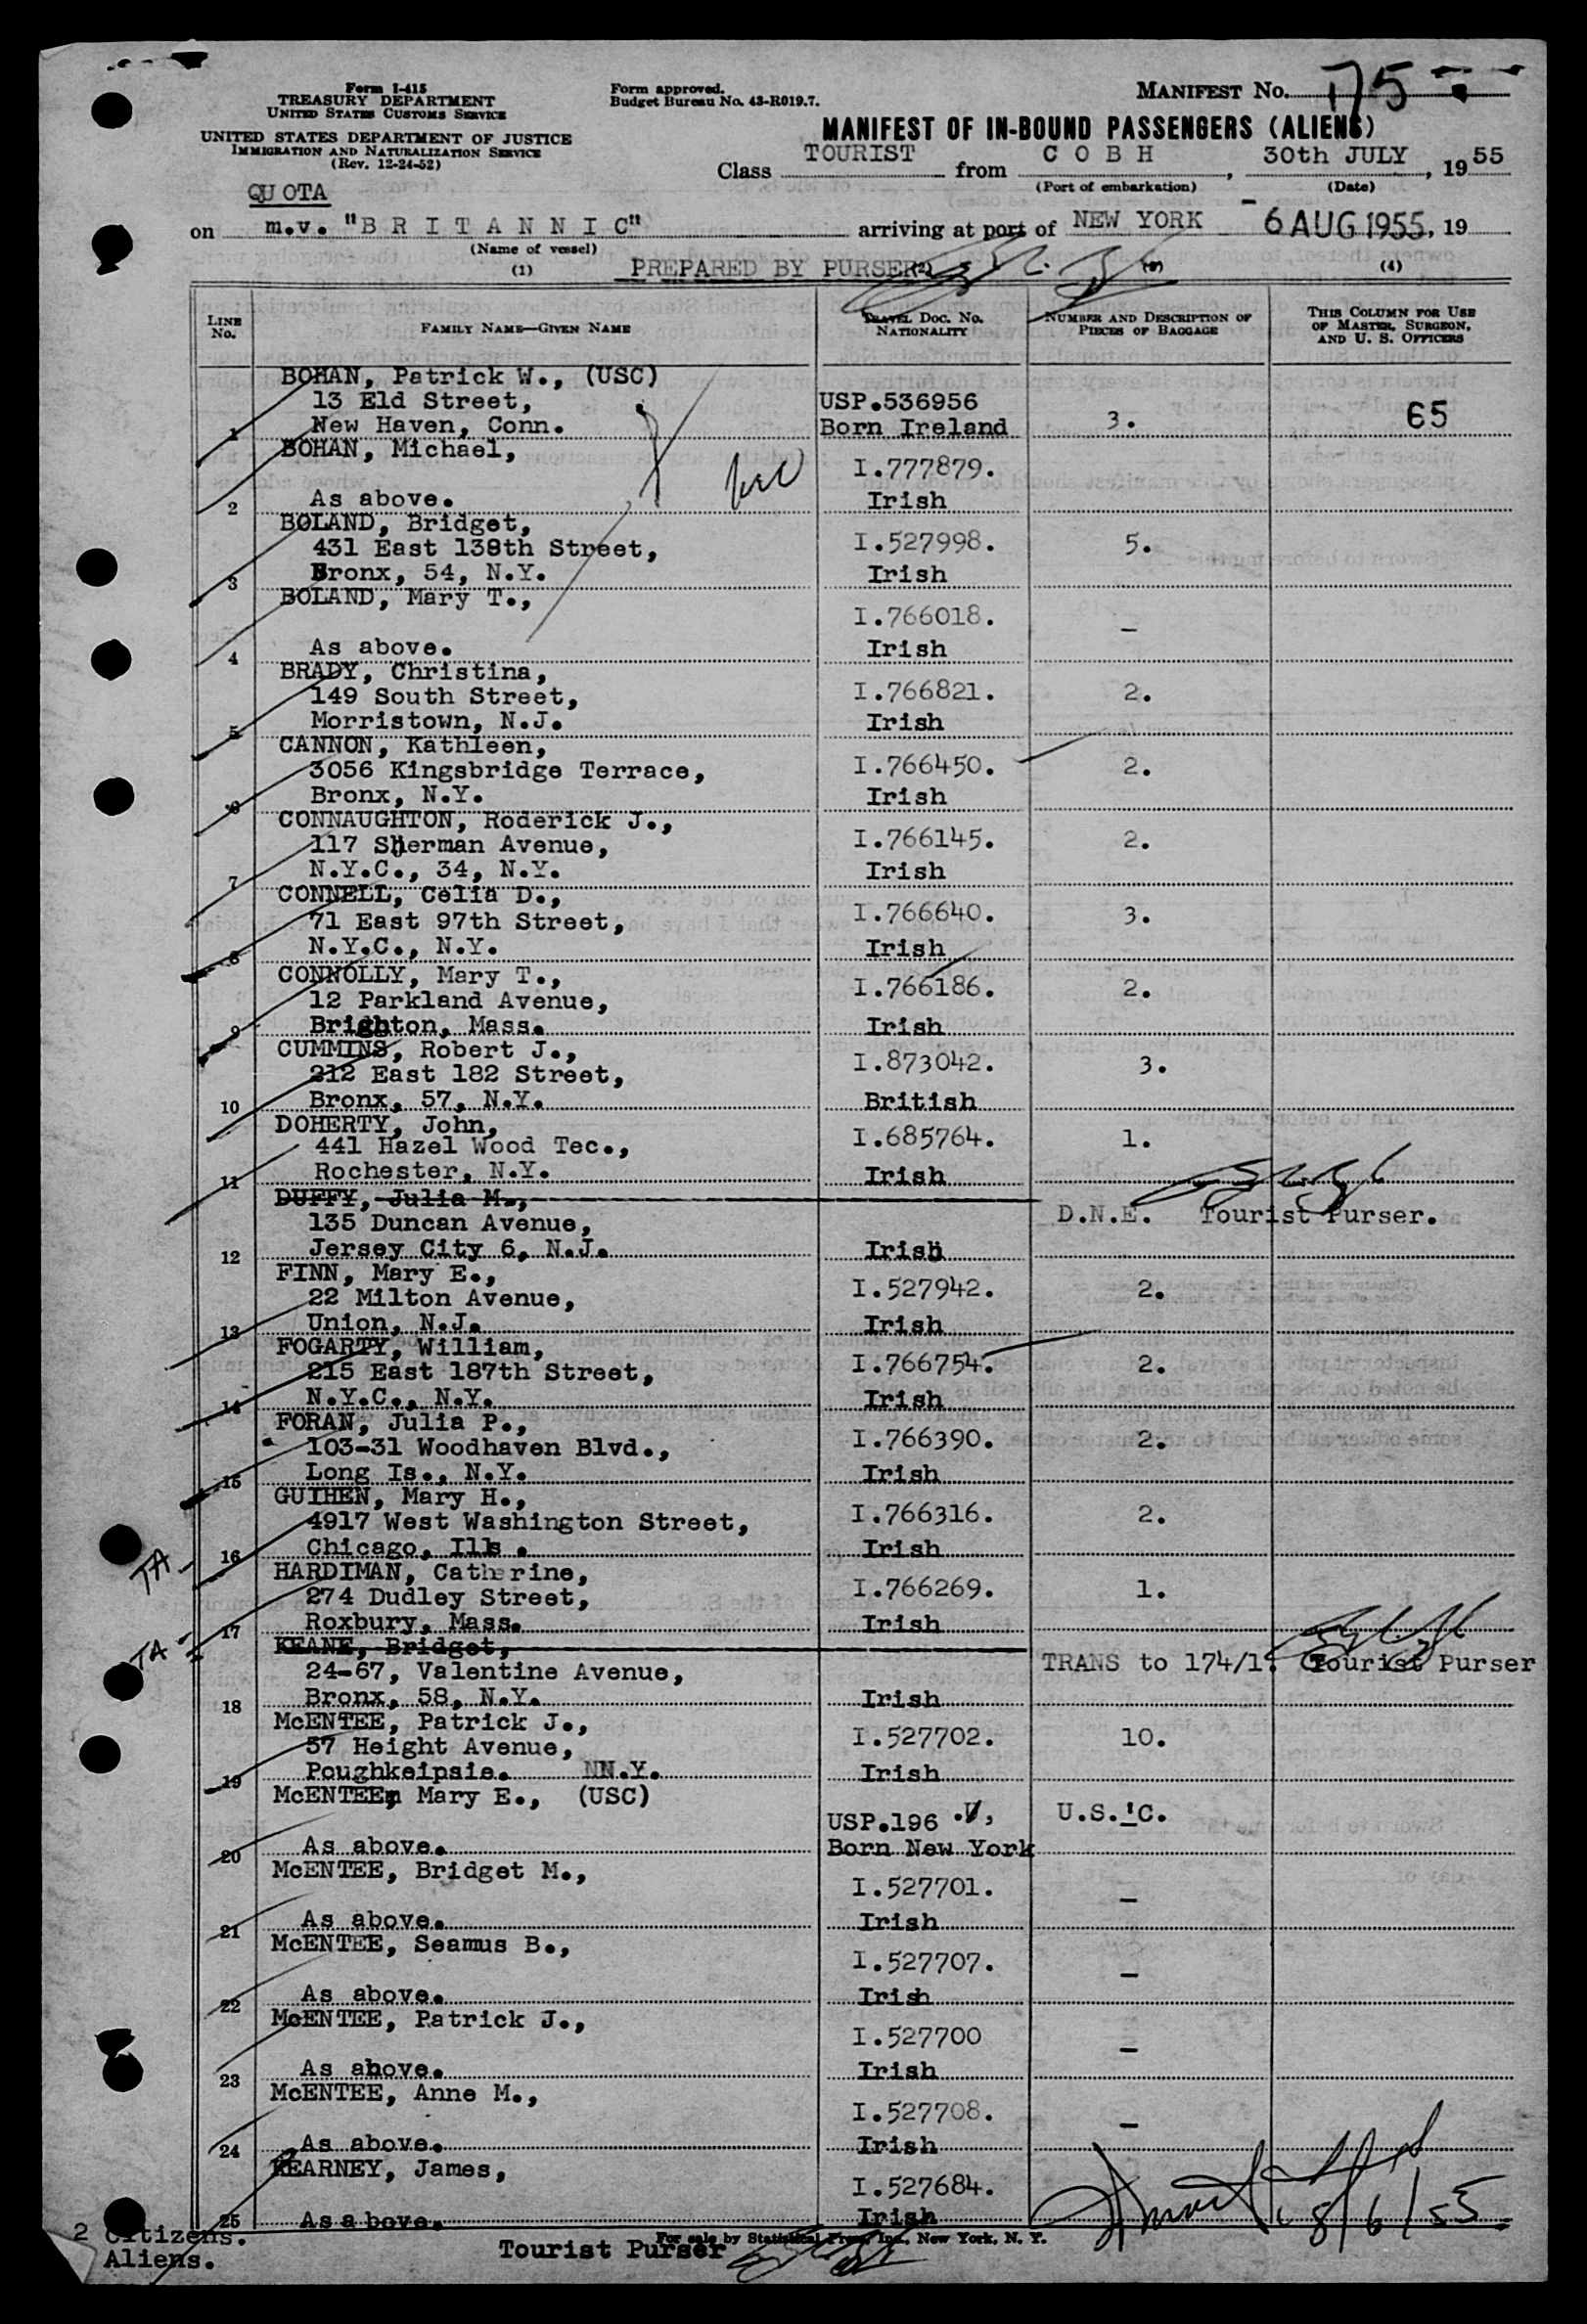 Form I-415
TREASURY DEPARTMENT
UNITED STATES CUSTOMS SERVICE
UNITED STATES DEPARTMENT OF JUSTICE
IMMIGRATION AND NATURALIZATION SERVICE
(Rev. 12-24-52)
Form approved.
Budget Bureau No. 43-R019.7.
MANIFEST No. 175
MANIFEST OF IN-BOUND PASSENGERS (ALIENS)
Class TOURIST from C O B H, 30th JULY, 1955
(Port of embarkation) (Date)
QUOTA
on m.v. "B R I T A N N I C" arriving at port of NEW YORK 6 AUG 1955, 19
(Name of vessel)
(1) PREPARED BY PURSER (2) (3) (4)
LINE No. FAMILY NAME—GIVEN NAME TRAVEL DOC. NO. NATIONALITY NUMBER AND DESCRIPTION OF PIECES OF BAGGAGE THIS COLUMN FOR USE OF MASTER, SURGEON, AND U. S. OFFICERS
BOHAN, Patrick W., (USC)
13 Eld Street, USP.536956
1 New Haven, Conn. Born Ireland 3. 65
BOHAN, Michael,
I.777879.
2 As above. Irish
BOLAND, Bridget,
431 East 138th Street, I.527998. 5.
3 Bronx, 54, N.Y. Irish
BOLAND, Mary T.,
I.766018. -
4 As above. Irish
BRADY, Christina,
149 South Street, I.766821. 2.
5 Morristown, N.J. Irish
CANNON, Kathleen,
3056 Kingsbridge Terrace, I.766450. 2.
6 Bronx, N.Y. Irish
CONNAUGHTON, Roderick J.,
117 Sherman Avenue, I.766145. 2.
7 N.Y.C., 34, N.Y. Irish
CONNELL, Celia D.,
71 East 97th Street, I.766640. 3.
8 N.Y.C., N.Y. Irish
CONNOLLY, Mary T.,
12 Parkland Avenue, I.766186. 2.
9 Brighton, Mass. Irish
CUMMINS, Robert J.,
212 East 182 Street, I.873042. 3.
10 Bronx, 57, N.Y. British
DOHERTY, John,
441 Hazel Wood Tec., I.685764. 1.
11 Rochester, N.Y. Irish
DUFFY, Julia M.,
135 Duncan Avenue, D.N.E. Tourist Purser.
12 Jersey City 6, N.J. Irish
FINN, Mary E.,
22 Milton Avenue, I.527942. 2.
13 Union, N.J. Irish
FOGARTY, William,
215 East 187th Street, I.766754. 2.
14 N.Y.C., N.Y. Irish
FORAN, Julia P.,
103-31 Woodhaven Blvd., I.766390. 2.
15 Long Is., N.Y. Irish
GUIHEN, Mary H.,
4917 West Washington Street, I.766316. 2.
TA - 16 Chicago, Ills. Irish
HARDIMAN, Catherine,
274 Dudley Street, I.766269. 1.
TA - 17 Roxbury, Mass. Irish
KEANE, Bridget,
24-67, Valentine Avenue, TRANS to 174/1. Tourist Purser
18 Bronx, 58, N.Y. Irish
McENTEE, Patrick J.,
37 Height Avenue, I.527702. 10.
19 Poughkeipsie. NN.Y. Irish
McENTEE, Mary E., (USC)
USP.196 U.S.'C.
20 As above. Born New York
McENTEE, Bridget M.,
I.527701. -
21 As above. Irish
McENTEE, Seamus B.,
I.527707. -
22 As above. Irish
McENTEE, Patrick J.,
I.527700 -
23 As above. Irish
McENTEE, Anne M.,
I.527708. -
24 As above. Irish
KEARNEY, James,
I.527684.
25 As above. Irish 8/6/55
2 Citizens.
For sale by Statistical Press, Inc., New York, N. Y.
Aliens. Tourist Purser